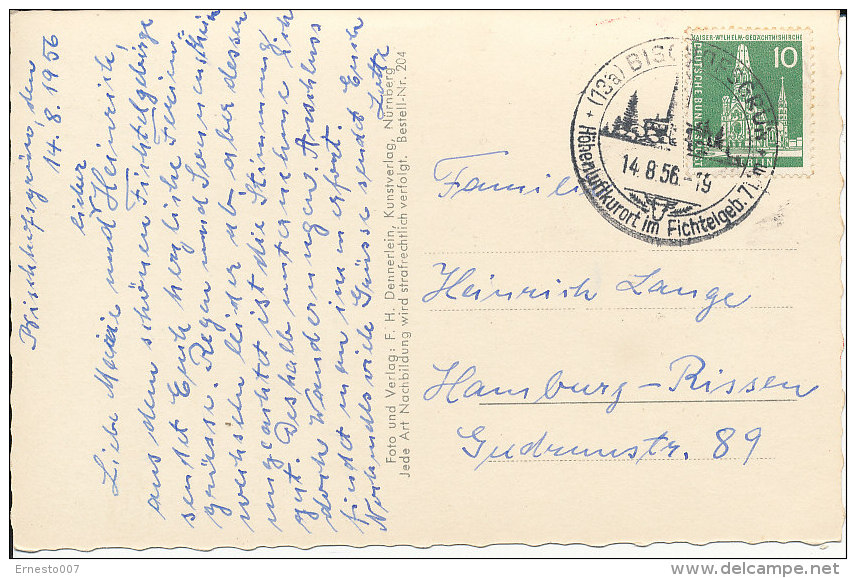 Bischofsgrün, den
14.8.1956
lieber
Liebe Marie und Heinrich,
aus dem schönen Fichtelgebirge
sendet Euch herzliche Ferien-
grüsse. Regen und Sonnenschein
wechseln leider ab aber dessen
ungeachtet ist die Stimmung
gut. Deshalb unternehme ich
doch Wanderungen. Anschluss
findet man immer fort.
Nochmals viele Grüsse sendet Euch
Lotte
Foto und Verlag: F. H. Dennerlein, Kunstverlag, Nürnberg
Jede Art Nachbildung wird strafrechtlich verfolgt. Bestell-Nr. 204
KAISER-WILHELM-GEDÄCHTNISKIRCHE
10
DEUTSCHE BUNDESPOST
BERLIN
+ (13a) BISCHOFSGRÜN +
14.8.56.-19
Höhenluftkurort im Fichtelgeb.
Familie
Heinrich Lange
Hamburg-Rissen
Gudrunstr. 89
Ernesto007
delcampe.net